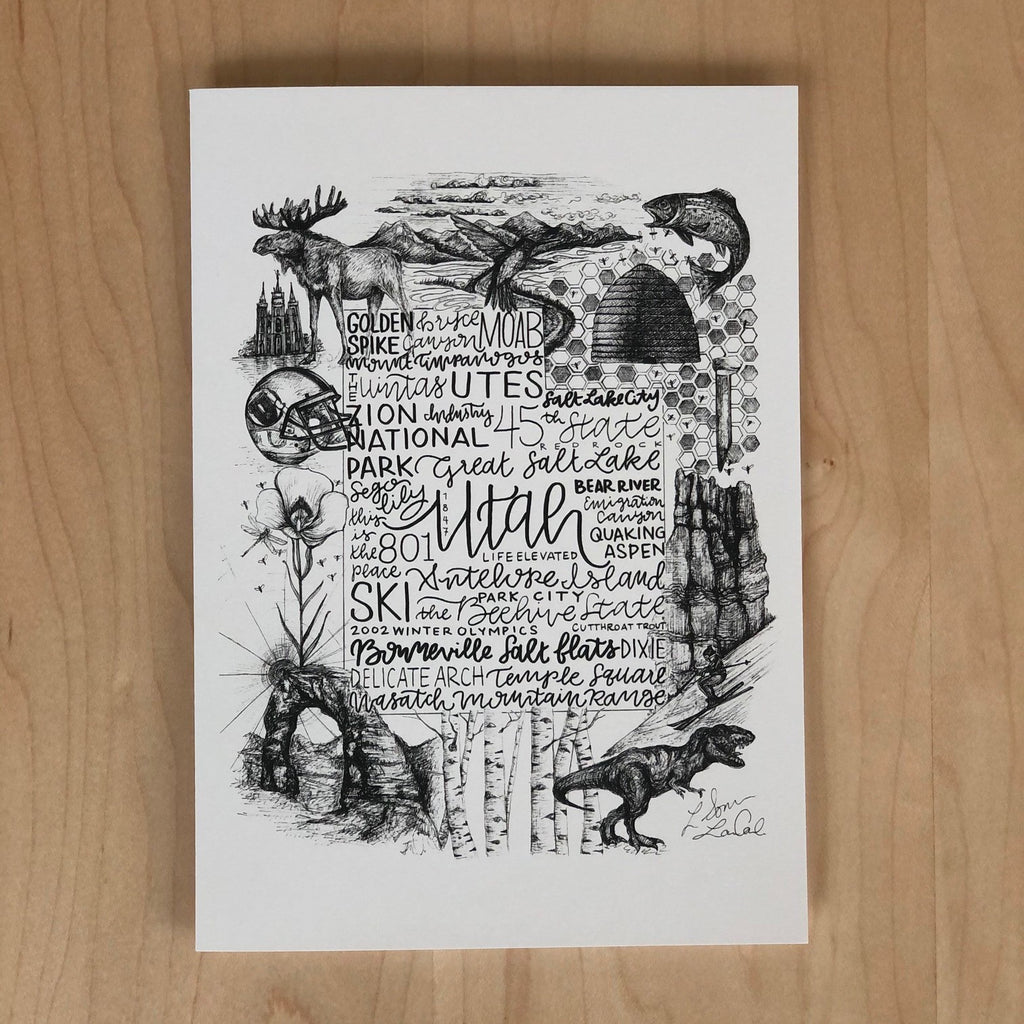 GOLDEN SPIKE Bryce Canyon MOAB
Mount Timpanogos
THE Uintas UTES
Salt Lake City
ZION NATIONAL PARK Industry 45th State
REDROCK
Great Salt Lake
Sego lily
1847
Utah
LIFE ELEVATED
BEAR RIVER
Emigration Canyon
this is the place
801
QUAKING ASPEN
Antelope Island
PARK CITY
SKI the Beehive State
2002 WINTER OLYMPICS CUTTHROAT TROUT
Bonneville Salt flats DIXIE
DELICATE ARCH Temple Square
Wasatch Mountain Range